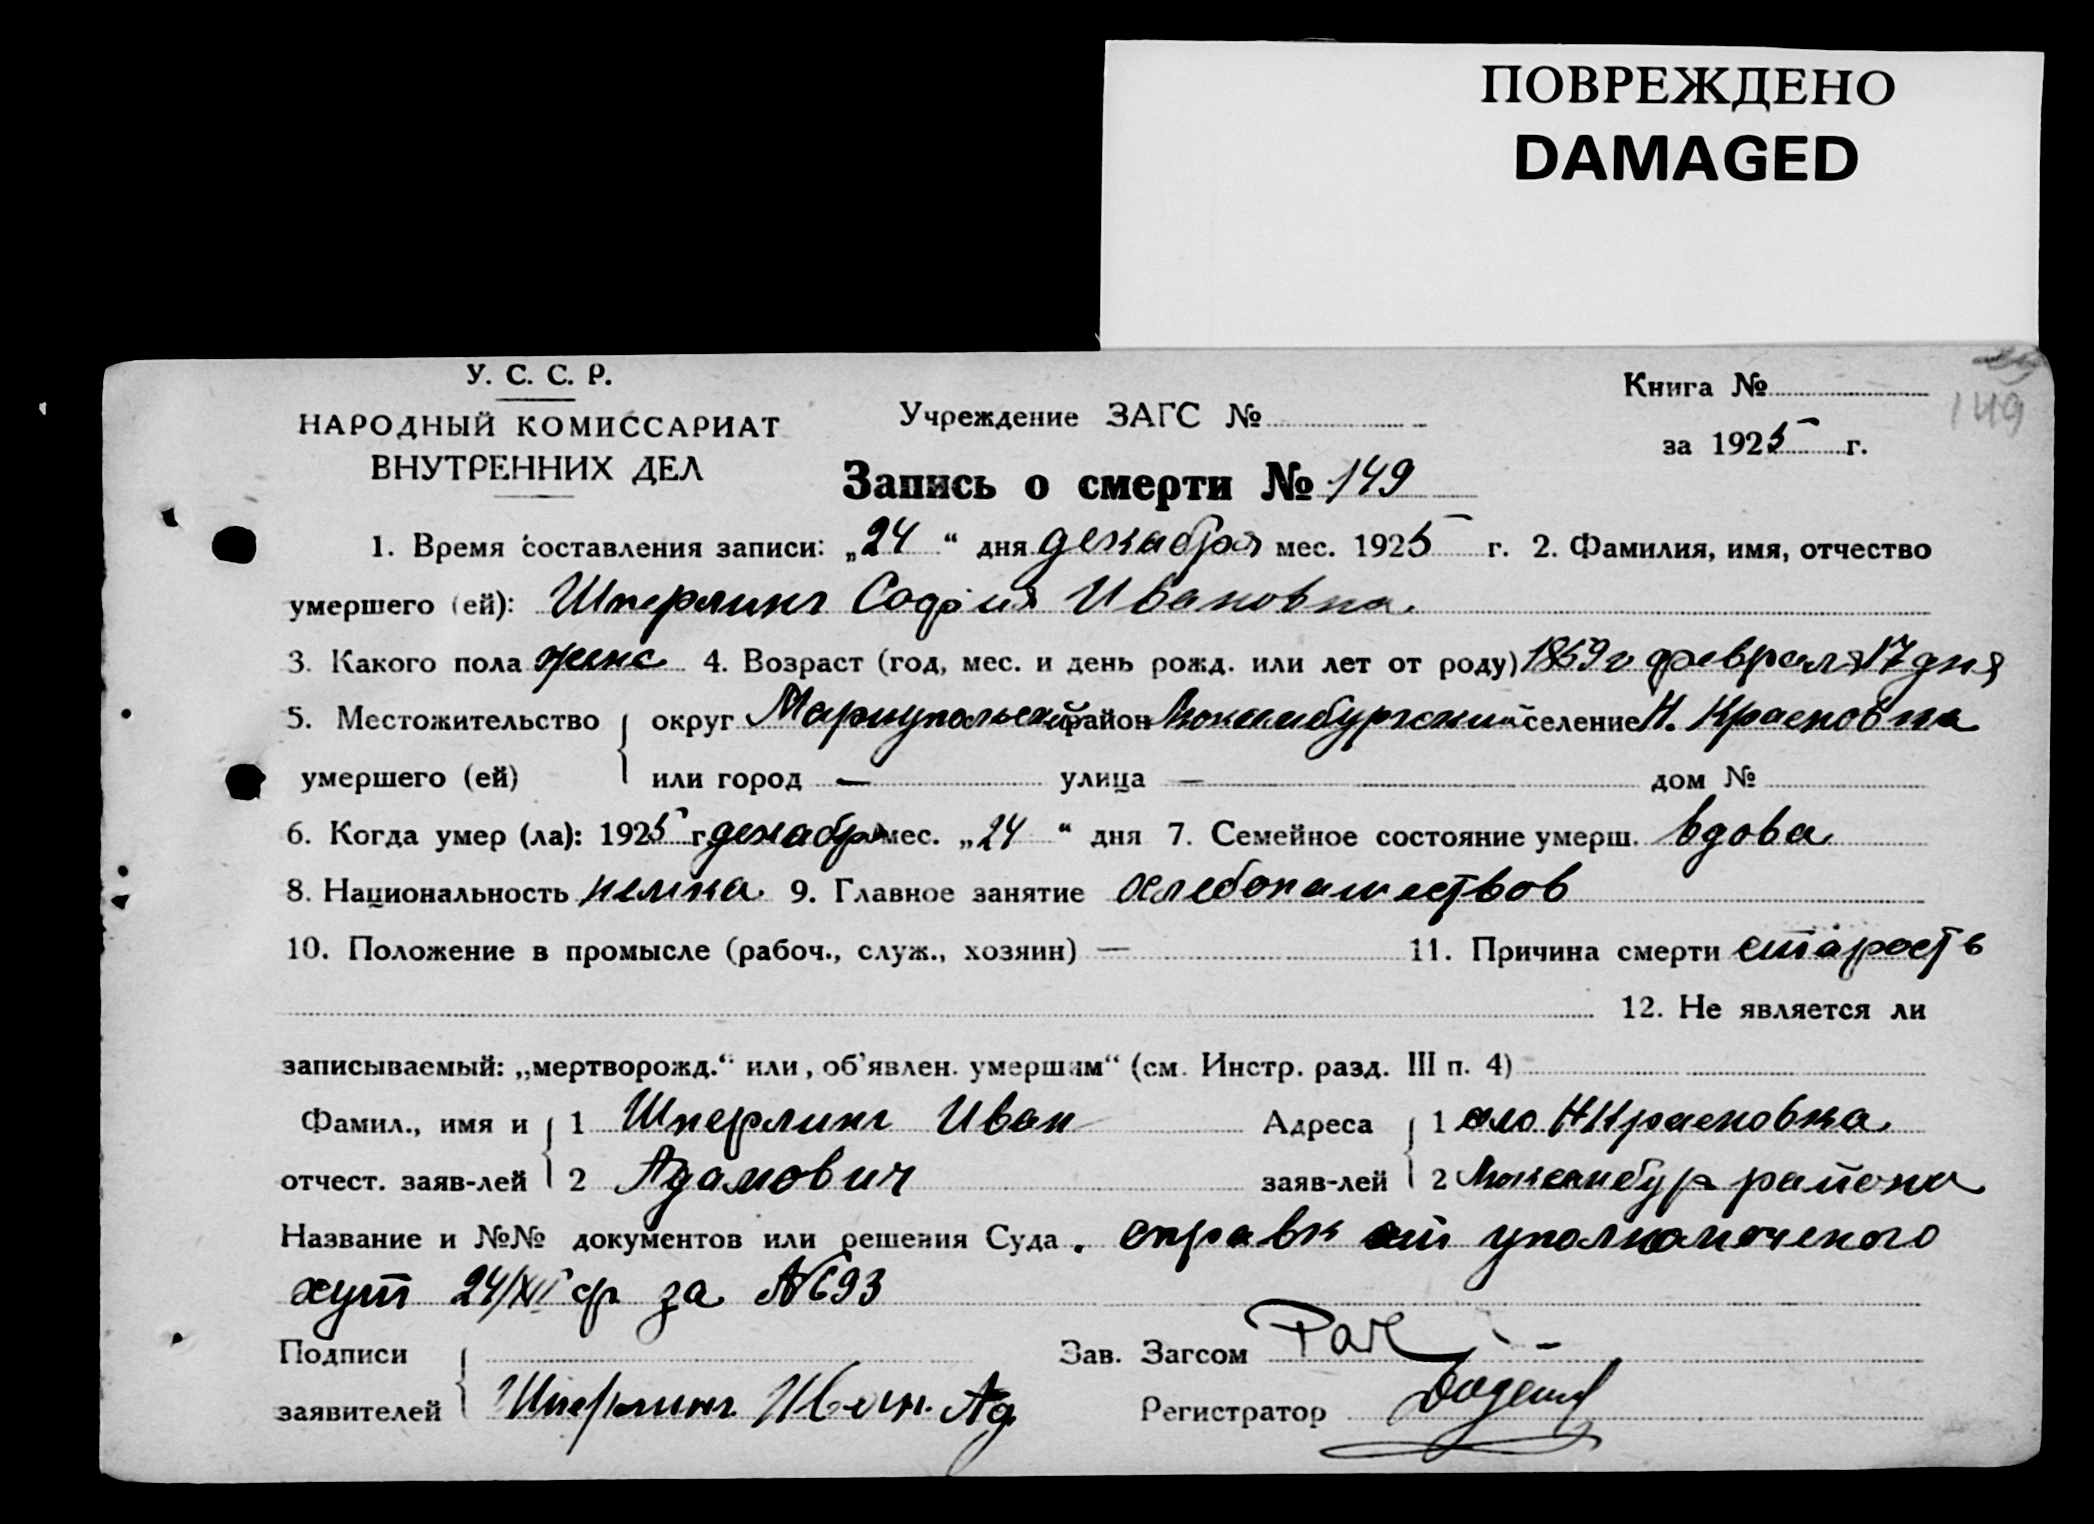 ПОВРЕЖДЕНО
DAMAGED
У. С. С. Р.
НАРОДНЫЙ КОМИССАРИАТ
ВНУТРЕННИХ ДЕЛ
Учреждение ЗАГС №
Книга №
149
за 1925 г.
Запись о смерти № 149
1. Время составления записи: „24“ дня декабря мес. 1925 г. 2. Фамилия, имя, отчество
умершего (ей): Шперлинг София Ивановна.
3. Какого пола женс 4. Возраст (год, мес. и день рожд. или лет от роду) 1869 г февраля 17 дня
5. Местожительство округ Мариупольский район Люксембургский селение Н. Красновка
умершего (ей) или город — улица — дом №
6. Когда умер (ла): 1925 г. декабря мес. „24“ дня 7. Семейное состояние умерш. вдова
8. Национальность немка 9. Главное занятие хлебопашеством
10. Положение в промысле (рабоч., служ., хозяин) — 11. Причина смерти старость
12. Не является ли
записываемый: „мертворожд.“ или „об'явлен. умершим“ (см. Инстр. разд. III п. 4)
Фамил., имя и 1 Шперлинг Иван Адреса 1 село Н Красновка
отчест. заяв-лей 2 Адамович заяв-лей 2 Люксембур района
Название и №№ документов или решения Суда. справк от уполномоченого
хут 24/XII ср за №693
Подписи Зав. Загсом
заявителей Шперлинг Иван. Ад Регистратор